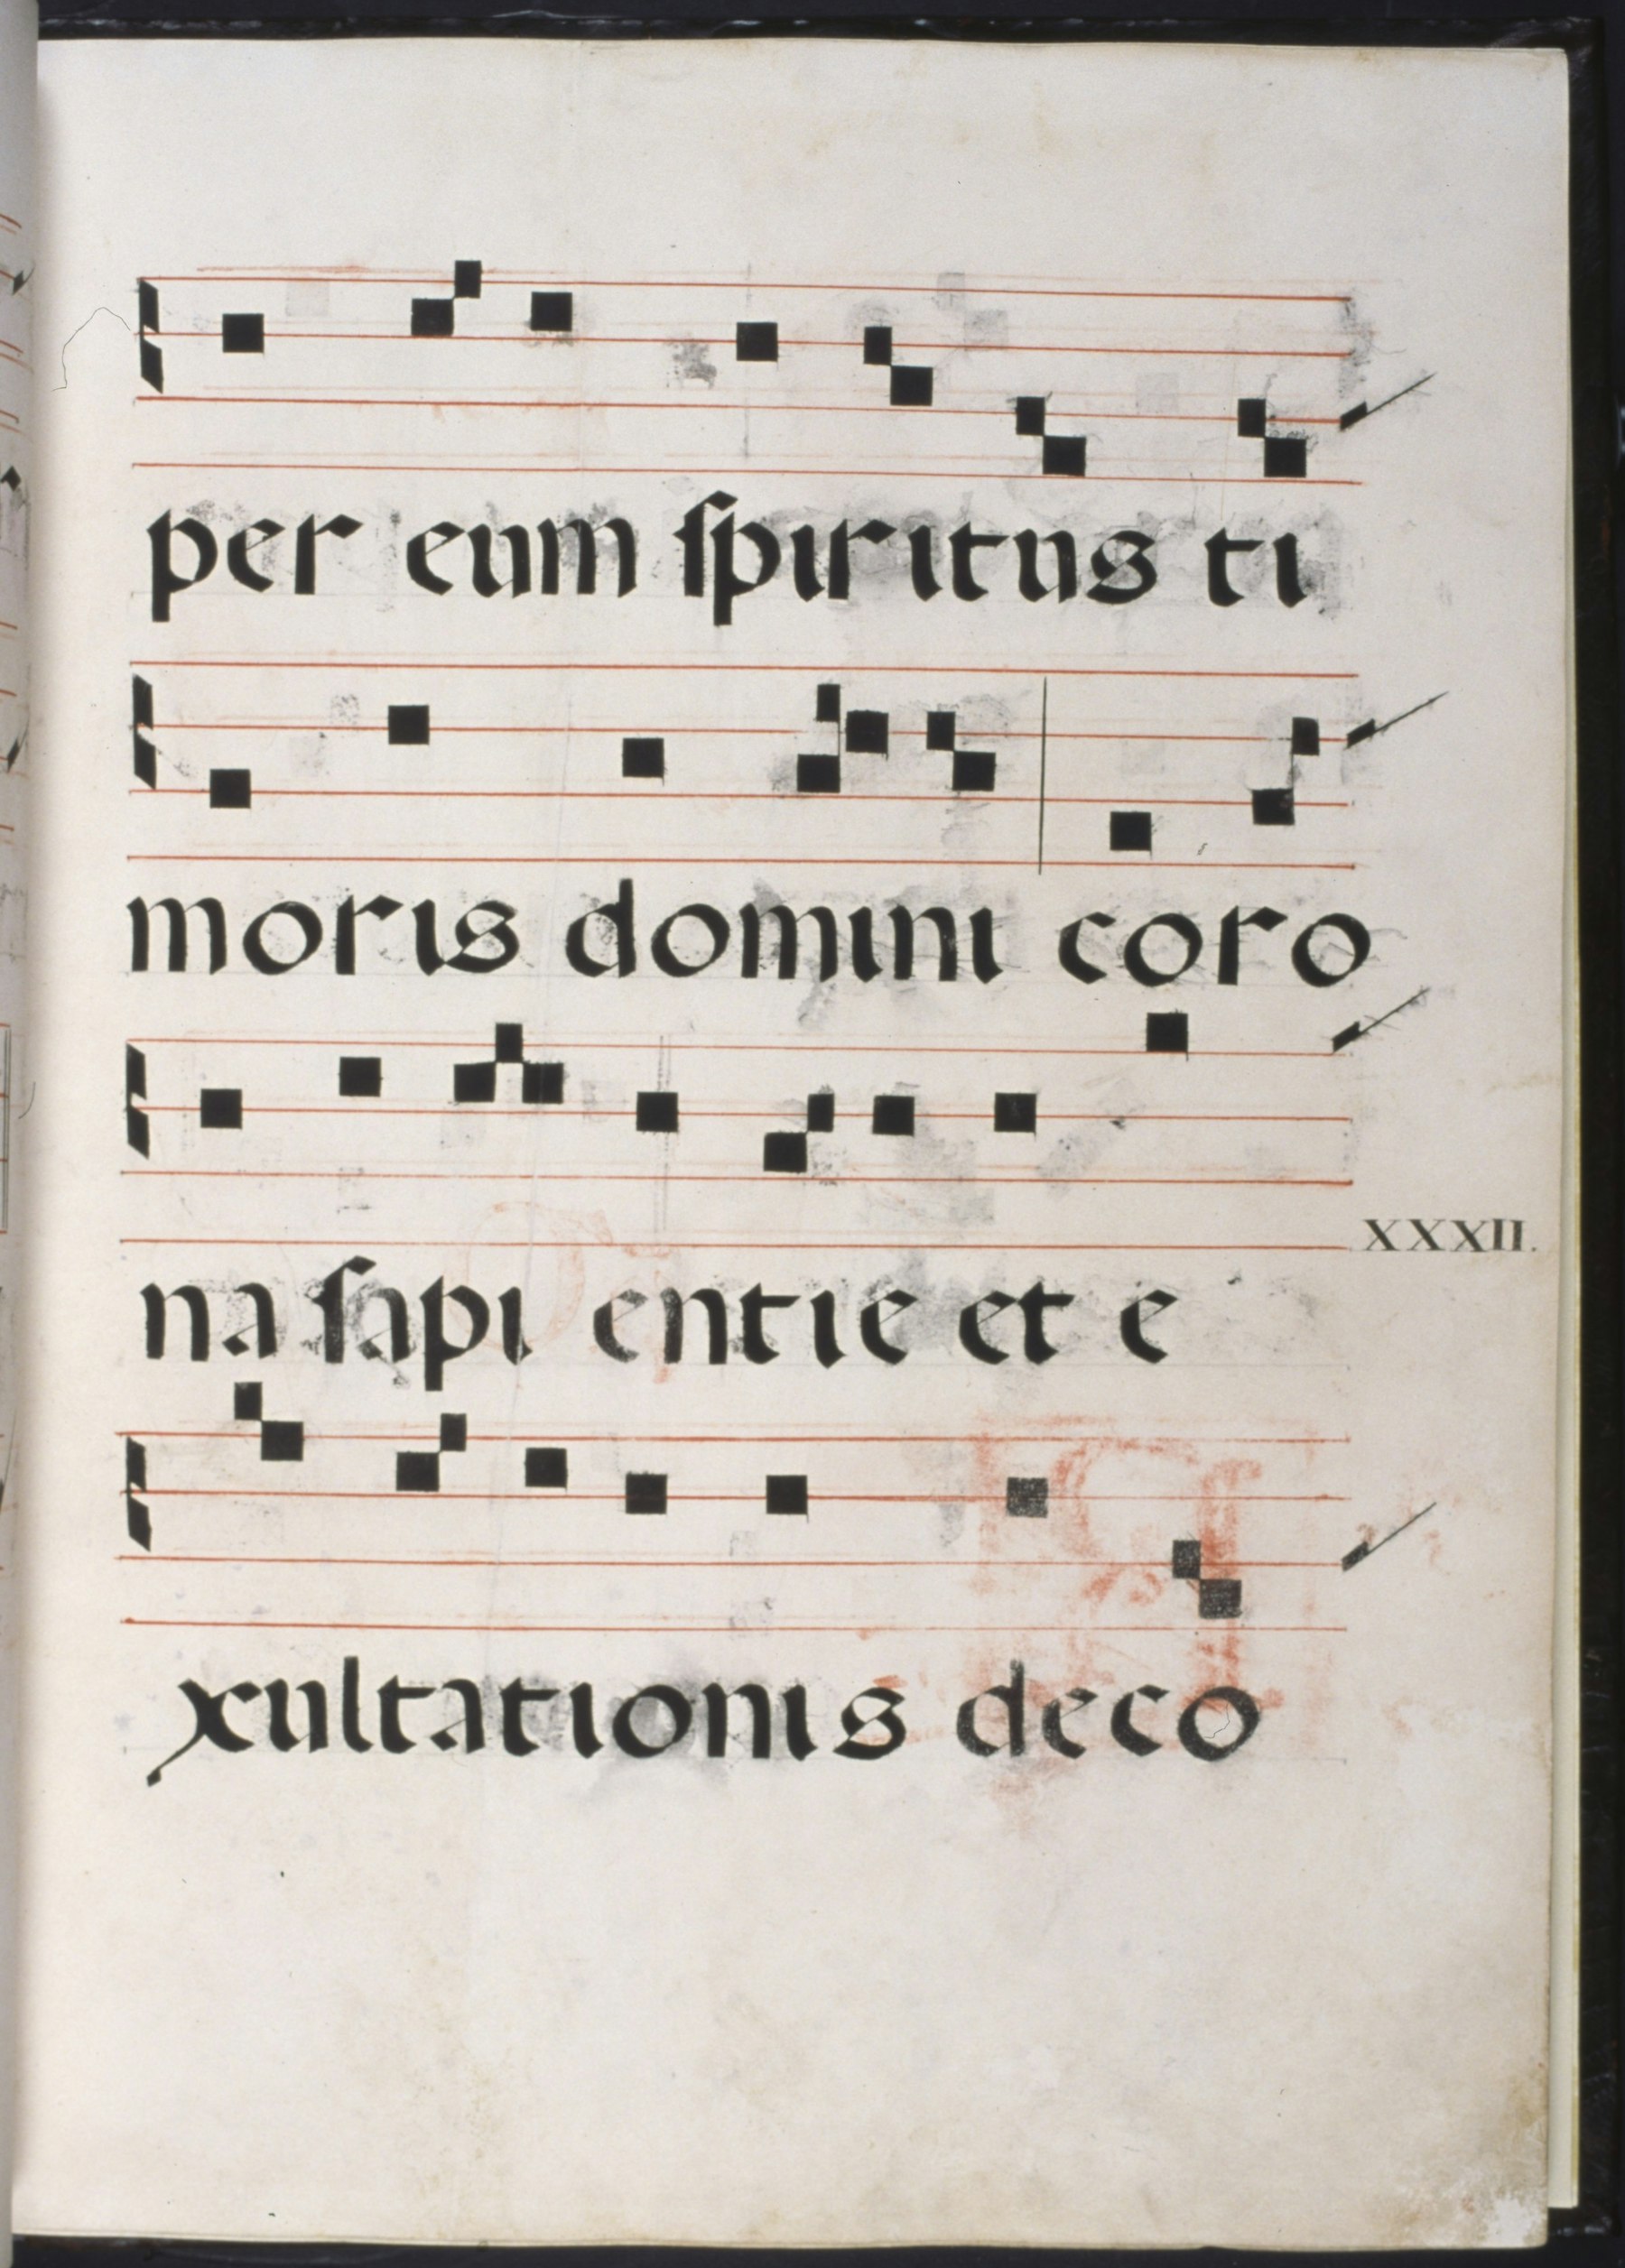 per eum spiritus ti
moris domini coro
XXXII.
na sapi entie et e
xultationis deco